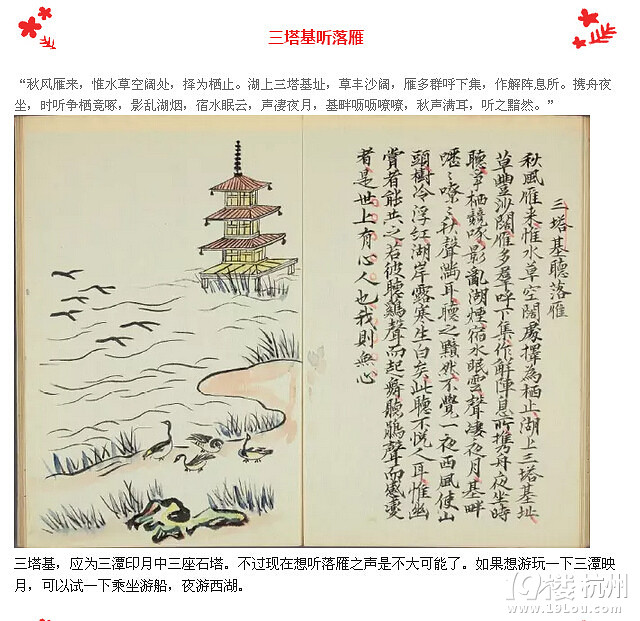 三塔基听落雁
“秋风雁来，惟水草空阔处，择为栖止。湖上三塔基址，草丰沙阔，雁多群呼下集，作解阵息所。携舟夜
坐，时听争栖竞啄，影乱湖烟，宿水眠云，声凄夜月，基畔呖呖嘹嘹，秋声满耳，听之黯然。”
三塔基聽落雁
秋風雁来惟水草空闊處擇為栖止湖上三塔基址
草豊沙闊雁多羣呼下集作解陣息所攜舟夜坐時
聽爭栖競啄影亂湖煙宿水眠雲聲凄夜月基畔
嚦〻嘹〻秋聲滿耳聽之黯然不覺一夜西風使山
頭樹冷浮紅湖岸露寒生白矣此聽不悦人耳惟幽
賞者能共之若彼聽鷄聲而起舞聽鵑聲而感變
者是世上有心人也我則無心
三塔基，应为三潭印月中三座石塔。不过现在想听落雁之声是不大可能了。如果想游玩一下三潭映
月，可以试一下乘坐游船，夜游西湖。
19楼杭州
www.19Lou.com